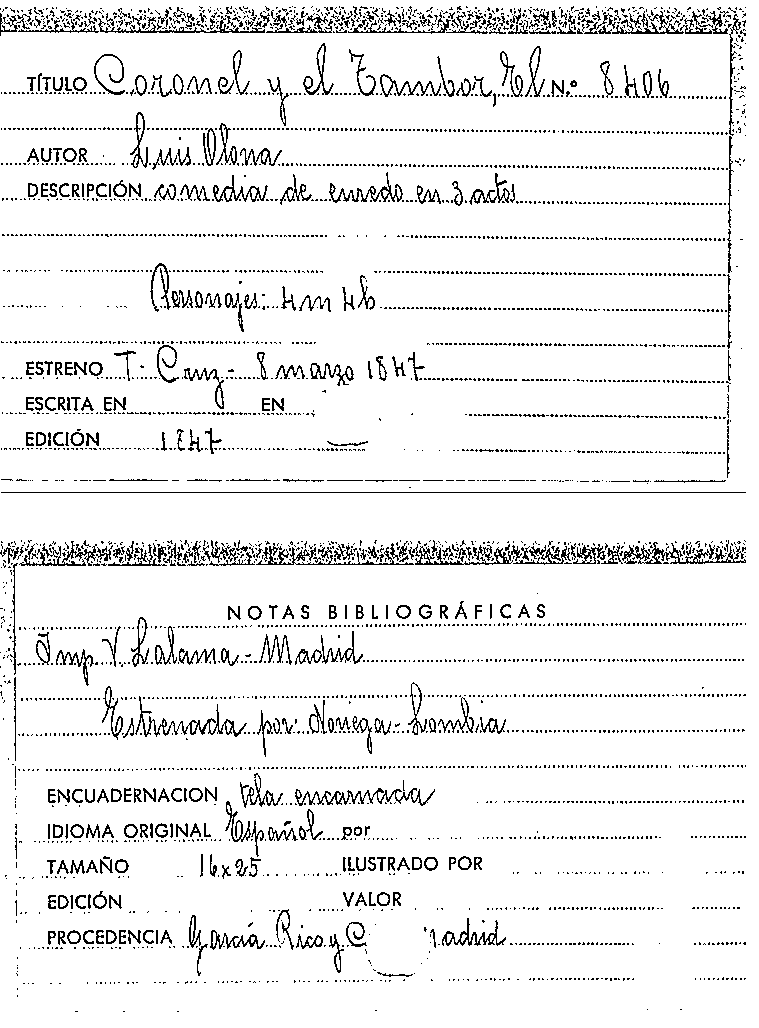 TÍTULO Coronel y el Tambor, El N.º 8406
AUTOR Luis Olona
DESCRIPCIÓN comedia de enredo en 3 actos
Personajes: 4m 4h
ESTRENO T. Cruz - 8 marzo 1847
ESCRITA EN EN
EDICIÓN 1847
NOTAS BIBLIOGRÁFICAS
Imp V. Lalama - Madrid
Estrenada por: Noriega - Lombia
ENCUADERNACION tela encarnada
IDIOMA ORIGINAL Español por
TAMAÑO 16x25 ILUSTRADO POR
EDICIÓN VALOR
PROCEDENCIA García Rico y C adrid